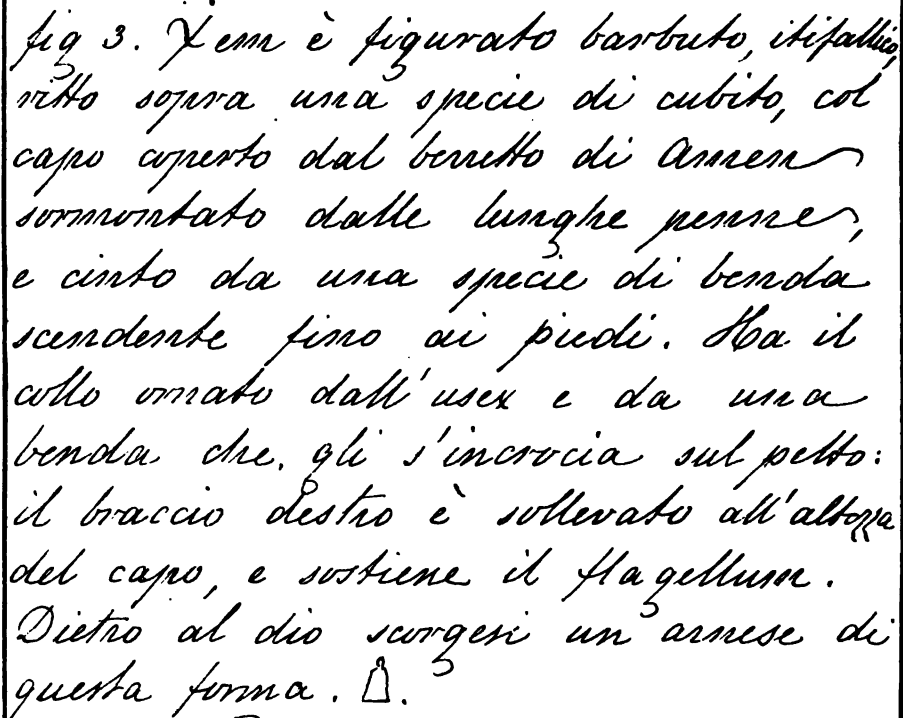 fig 3. Xem è figurato barbuto, itifallico,
ritto sopra una specie di cubito, col
capo coperto dal berretto di Amen
sormontato dalle lunghe penne,
e cinto da una specie di benda
scendente fino ai piedi. Ha il
collo ornato dall'usex e da una
benda che gli s'incrocia sul petto:
il braccio destro è sollevato all'altezza
del capo, e sostiene il flagellum.
Dietro al dio scorgesi un arnese di
questa forma. .